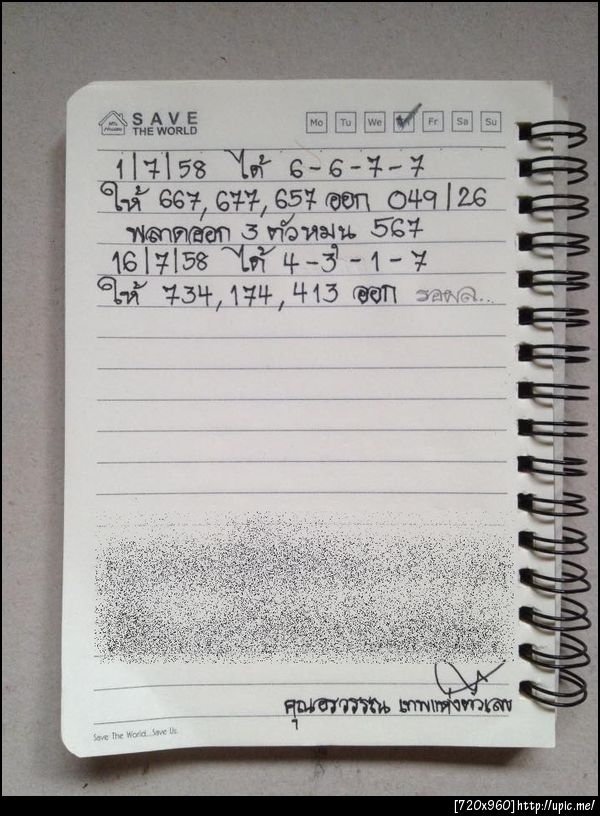 SAVE
THE WORLD
Mo Tu We Th Fr Sa Su
1|7|58 ได้ 6-6-7-7
ให้ 667, 677, 657 ออก 049|26
พลาดออก 3 ตัวหมุน 567
16|7|58 ได้ 4-3-1-7
ให้ 734, 174, 413 ออก รอผล...
คุณอรวรรณ เทพแห่งตัวเลข
Save The World...Save Us.
[720x960]http://upic.me/